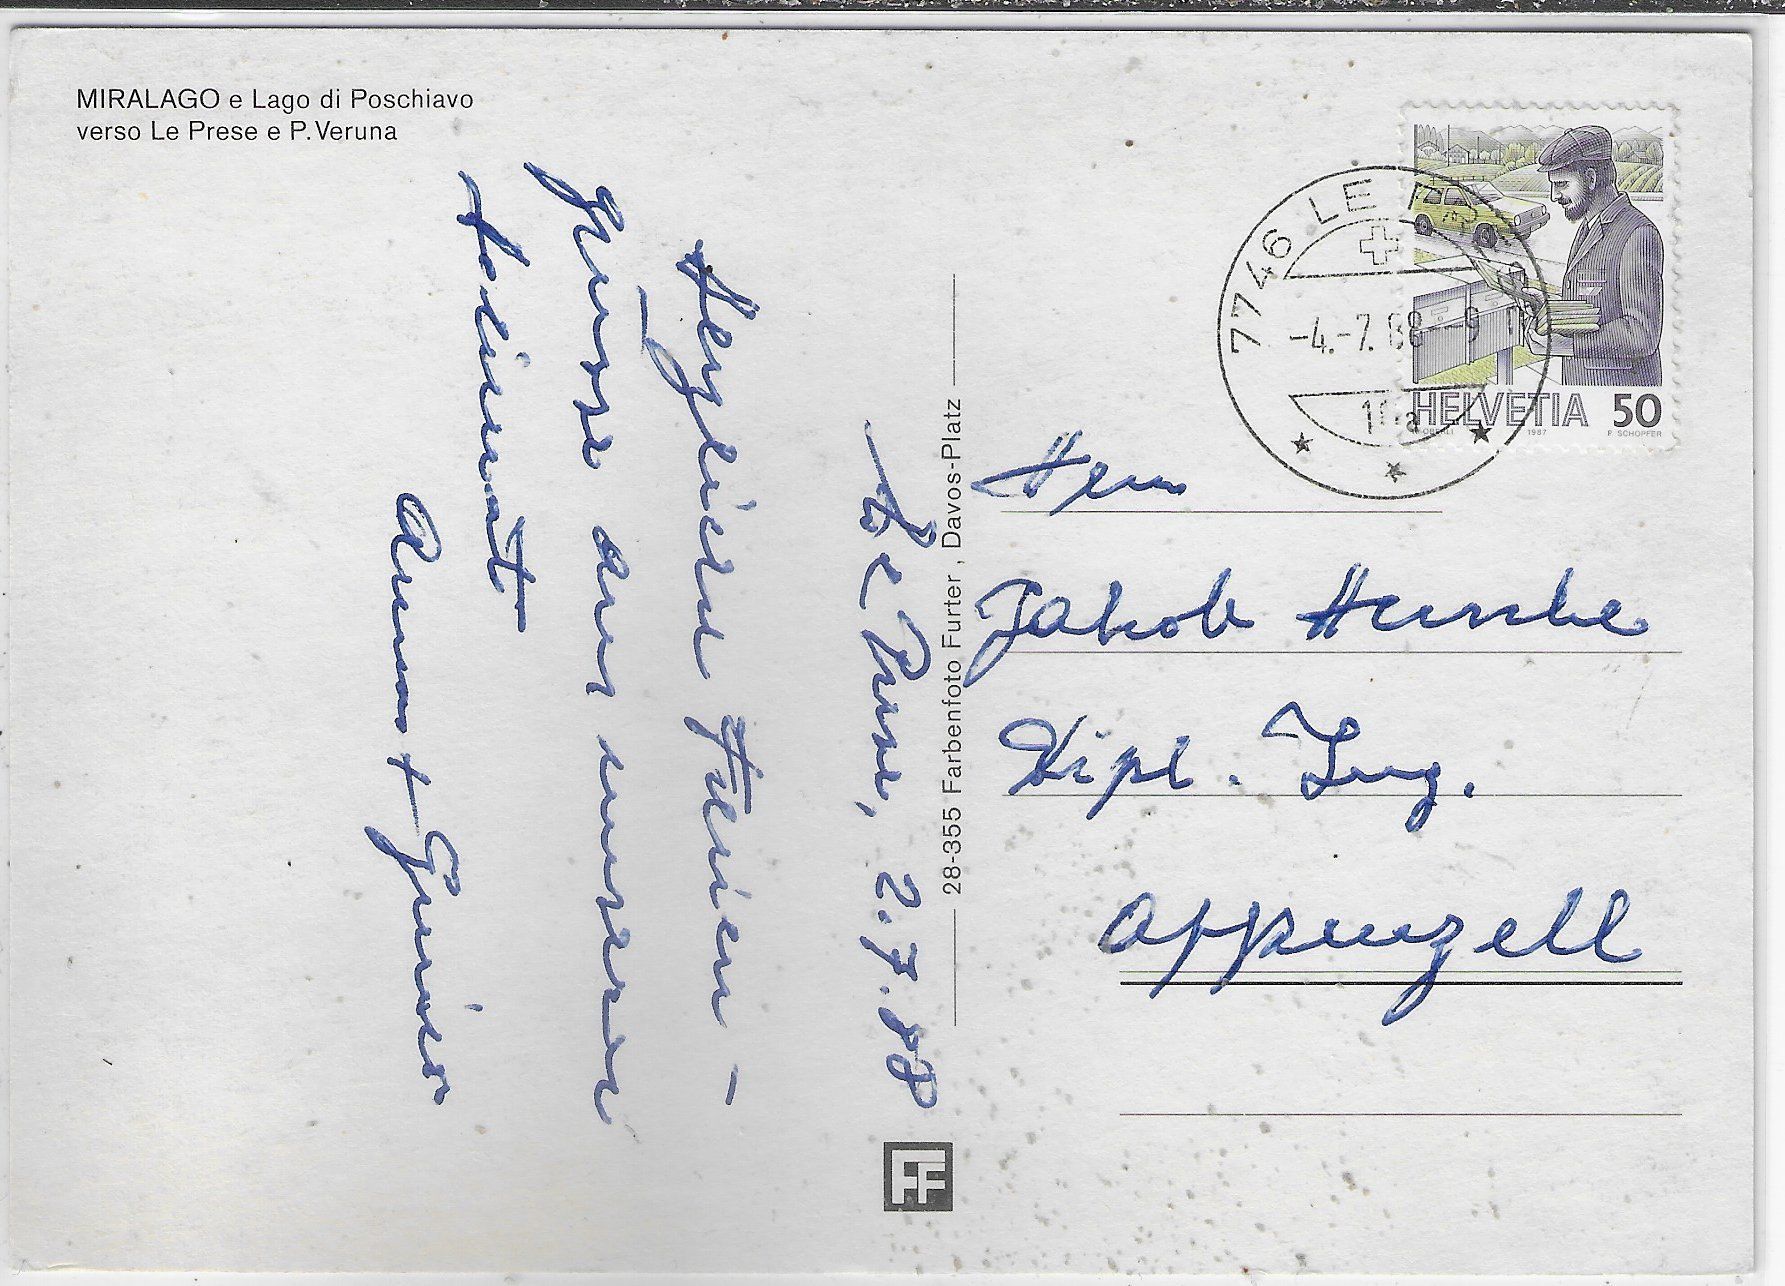 MIRALAGO e Lago di Poschiavo
verso Le Prese e P. Veruna
Le Prese, 2.7.88
Herzliche Ferien-
grüsse aus unserer
+
28-355 Farbenfoto Furter, Davos-Platz
FF
7746 LE
-4.-7.88
HELVETIA 50
1987 P. SCHOPFER
Herrn
Jakob
Dipl. Ing.
Appenzell